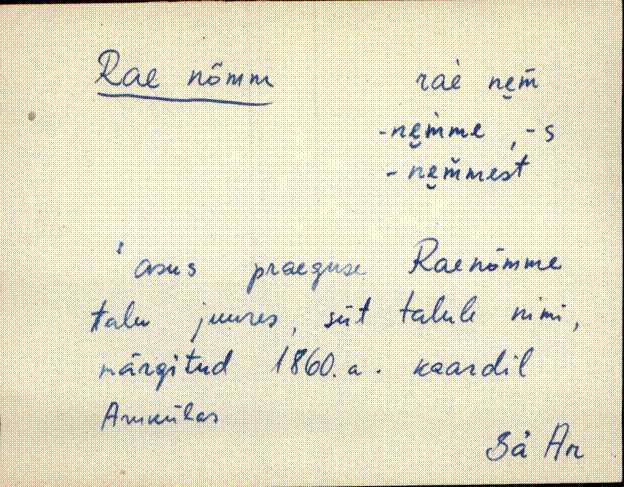 Rae nõmm raè ne̮m̄
-ne̮m̀me, -s
-ne̮m̆mest
asus praeguse Raenõmme
talu juures, siit talule nimi,
märgitud 1860. a. kaardil
Aruküla
Bä An